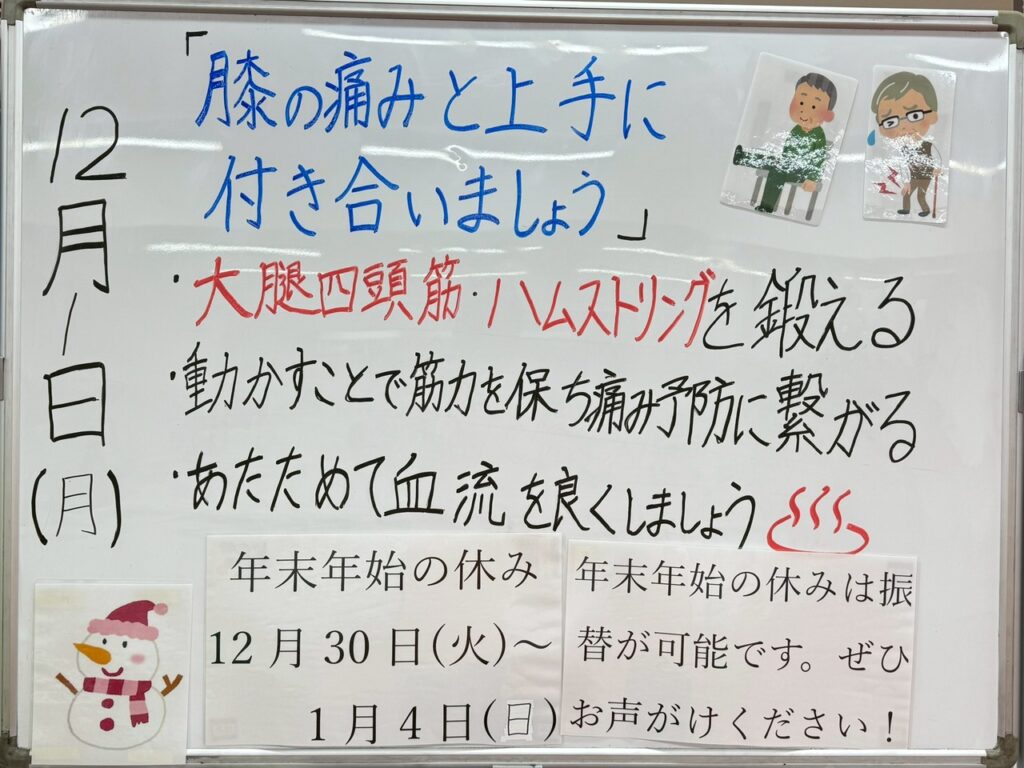 12月1日(月)
「膝の痛みと上手に
付き合いましょう」
・大腿四頭筋・ハムストリングを鍛える
・動かすことで筋力を保ち痛み予防に繋がる
・あたためて血流を良くしましょう
年末年始の休み
12月30日(火)～
1月4日(日)
年末年始の休みは振
替が可能です。ぜひ
お声がけください！